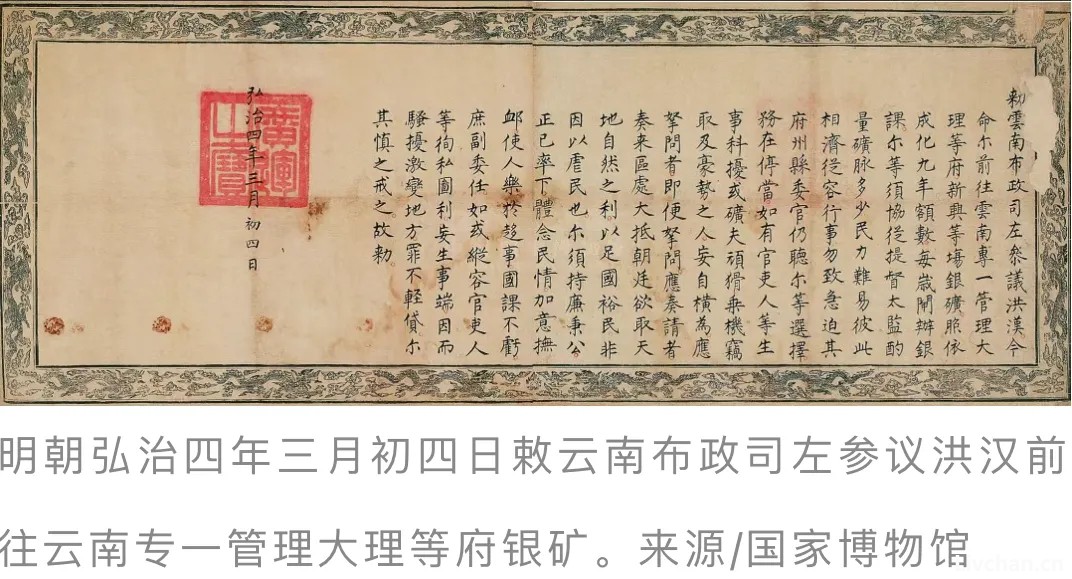 勅雲南布政司左叅議洪漢今
命尔前往雲南專一管理大
理等府新興等場銀礦照依
成化九年額數每歲閘辦銀
課尔等須協從提督太監酌
量礦脉多少民力難易彼此
相濟從容行事勿致急迫其
府州縣委官仍聽尔等選擇
務在停當如有官吏人等生
事科擾或礦夫頑猾乗機竊
取及豪勢之人妄自橫為應
拏問者即便拏問應奏請者
奏来區處大抵朝廷欲取天
地自然之利以足國裕民非
因以虐民也尔須持廉秉公
正己率下體念民情加意撫
卹使人樂於趍事國課不虧
庶副委任如或縱容官吏人
等徇私圖利妄生事端因而
騷擾激變地方罪不輕貸尔
其慎之戒之故勅
弘治四年三月初四日
廣運之寶
明朝弘治四年三月初四日敕云南布政司左参议洪汉前
往云南专一管理大理等府银矿。来源/国家博物馆